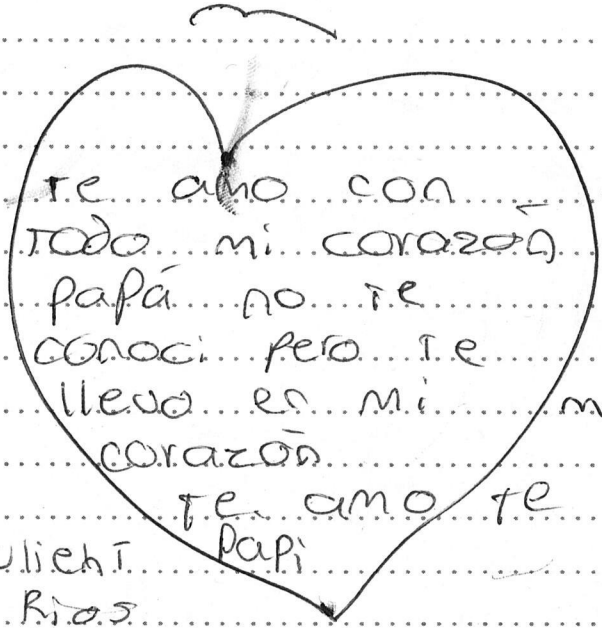 Te amo con
Todo mi corazón
papá no Te
conoci pero Te
llevo en mi m
corazón
Te amo te
papi
Rios